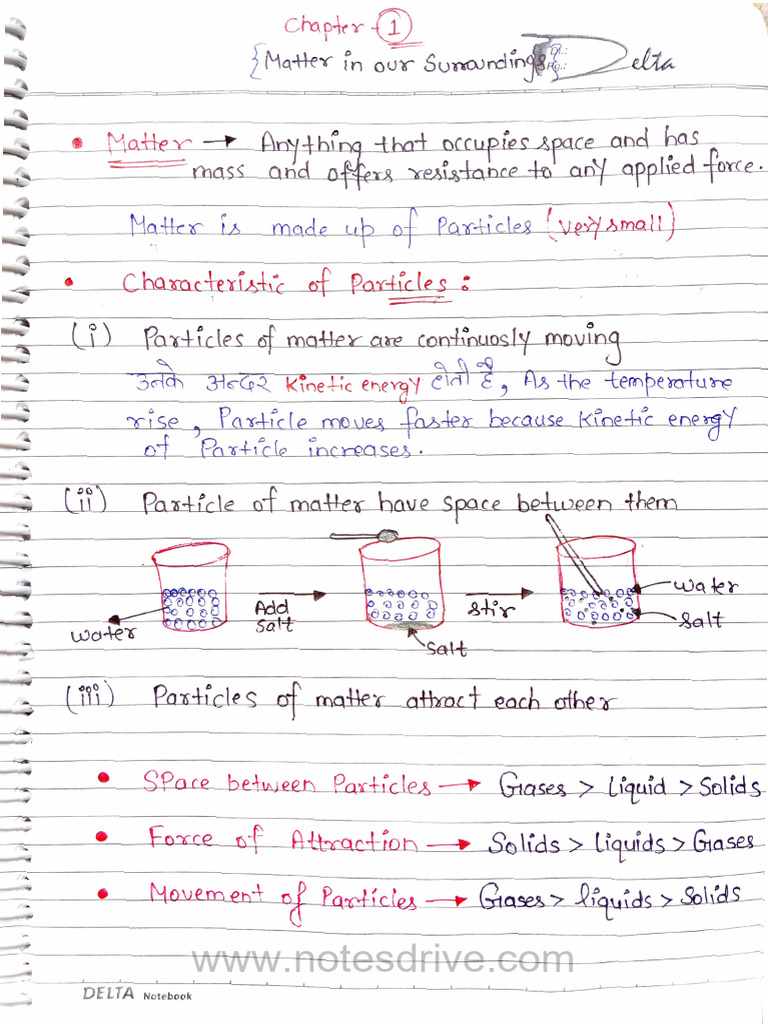 Chapter - 1
{Matter in our Surroundings} Delta
• Matter → Anything that occupies space and has
mass and offers resistance to any applied force.
Matter is made up of Particles (very small)
• Characteristic of Particles :
(i) Particles of matter are continuosly moving
उनके अन्दर Kinetic energy होती है, As the temperature
rise, Particle moves faster because kinetic energy
of Particle increases.
(ii) Particle of matter have space between them
water
Add
Salt
Salt
Stir
water
Salt
(iii) Particles of matter attract each other
• Space between Particles → Gases > Liquid > Solids
• Force of Attraction → Solids > Liquids > Gases
• Movement of Particles → Gases > liquids > Solids
www.notesdrive.com
DELTA Notebook